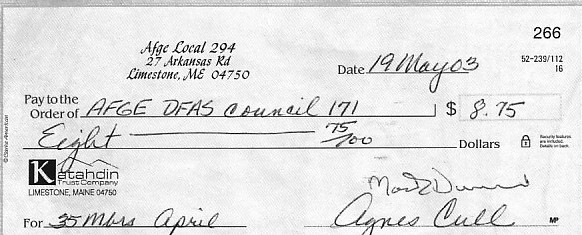 266
Afge Local 294
27 Arkansas Rd
Limestone, ME 04750
52-239/112
16
Date 19 May 03
Pay to the
Order of AFGE DFAS Council 171 $ 8.75
Eight 75/100 Dollars
Security features
are included.
Details on back.
Katahdin
Trust Company
LIMESTONE, MAINE 04750
For 35 Mbrs April Agnes Cull MP